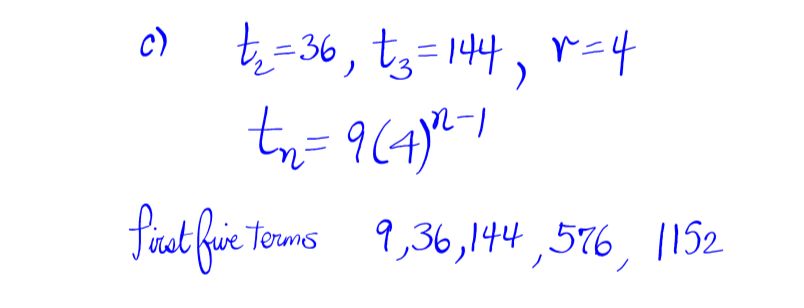 c) t₂=36, t₃=144, r=4
tₙ= 9(4)ⁿ⁻¹
first five terms 9,36,144,576, 1152